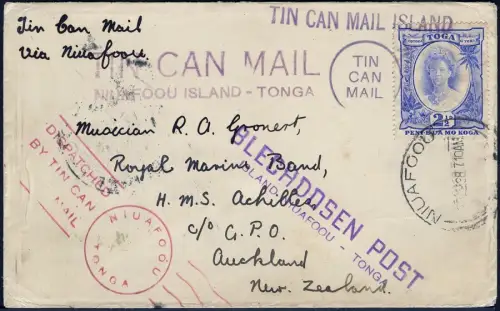 Tin Can Mail
Via Niuafoou
TIN CAN MAIL ISLAND
TIN CAN MAIL
NIUAFOOU ISLAND - TONGA
TIN
CAN
MAIL
TOGA
2½
PENI E UA MO KOGA
NIUAFOOU
DISPATCHED
BY TIN CAN
MAIL
NIUAFOOU
TONGA
BLECHDOSEN POST
ISLAND NIUAFOOU - TONGA
Musician R. A. Goonert,
Royal Marine Band,
H.M.S. Achilles
c/o G.P.O.
Auckland
New Zealand.